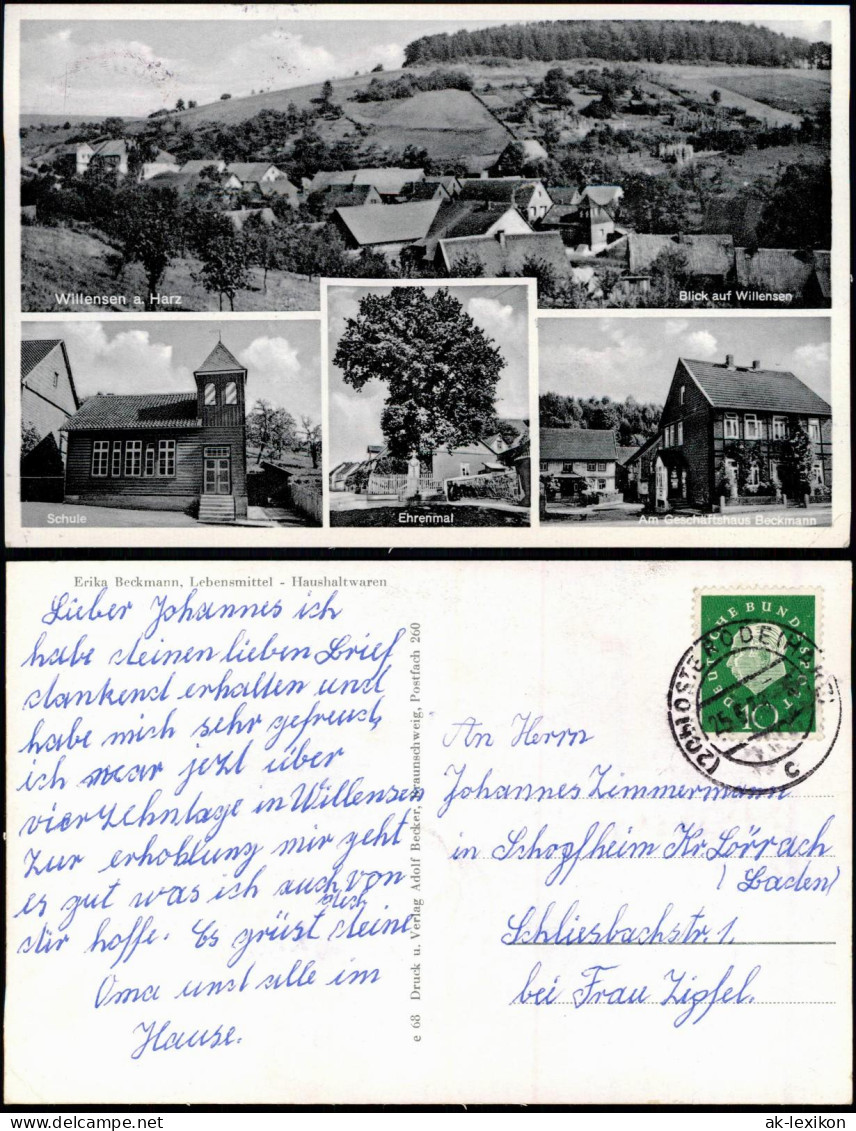 Willensen a. Harz
Blick auf Willensen
Schule
Ehrenmal
Am Geschäftshaus Beckmann
Erika Beckmann, Lebensmittel - Haushaltwaren
Lieber Johannes ich
habe deinen lieben Brief
dankend erhalten und
habe mich sehr gefreud,
ich war jetzt über
vierzehntage in Willensen
zur erhohlung mir geht
es gut was ich auch von
dir hoffe. Es grüst dich deine
Oma und alle im
Hause.
e 68 Druck u. Verlag Adolf Becker, Braunschweig, Postfach 260
DEUTSCHE BUNDESPOST
10
(20b) OSTERODE (HARZ)
c
An Herrn
Johannes Zimmermann
in Schopfheim Kr. Lörrach
(Baden)
Schliesbachstr. 1.
bei Frau Zipfel.
ak-lexikon
ak-lexikon.com